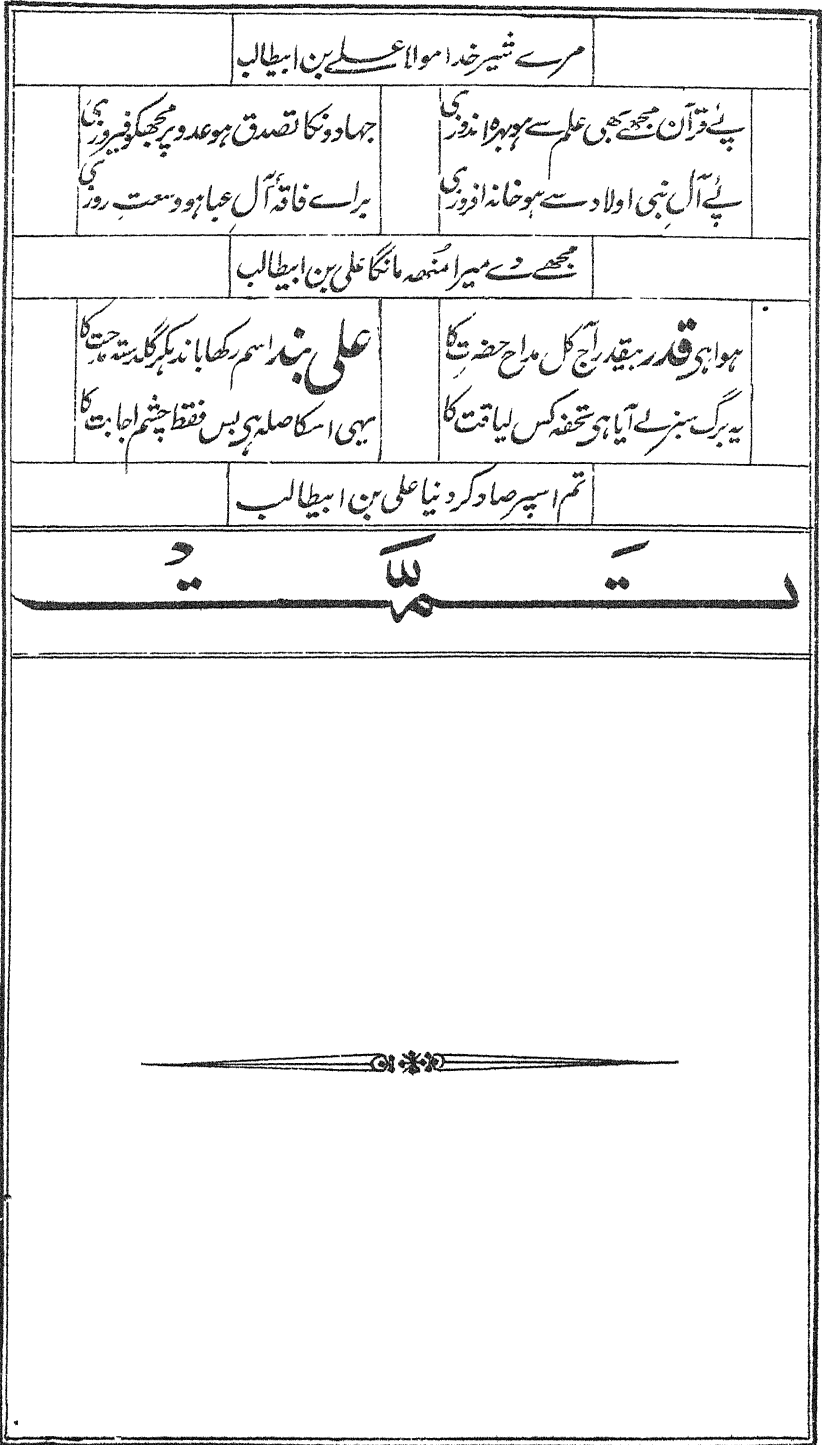 مرے شیر خدا مولا علے بن ابیطالب
پئے قرآن مجھے بھی علم سے ہو بہرہ اندوزی جہادونکا تصدق ہو عدو پر مجھکو فیروزی
پئے آلِ نبی اولاد سے ہو خانہ افروزی براے فاقۂ آلِ عبا ہو وسعتِ روزی
مجھے دے میرا منُھہ مانگا علی بن ابیطالب
ہوا ہی قدر بیقدر آج کل مداح حضرتِ کا علی بند اسم رکھا باندہکر گلدستہ مدحت کا
یہ برگ سبز لے آیا ہی تحفہ کس لیاقت کا یہی اسکا صلہ ہی بس فقط چشم اجابت کا
تم اسپر صاد کر دنیا علی بن ابیطالب
تمّت